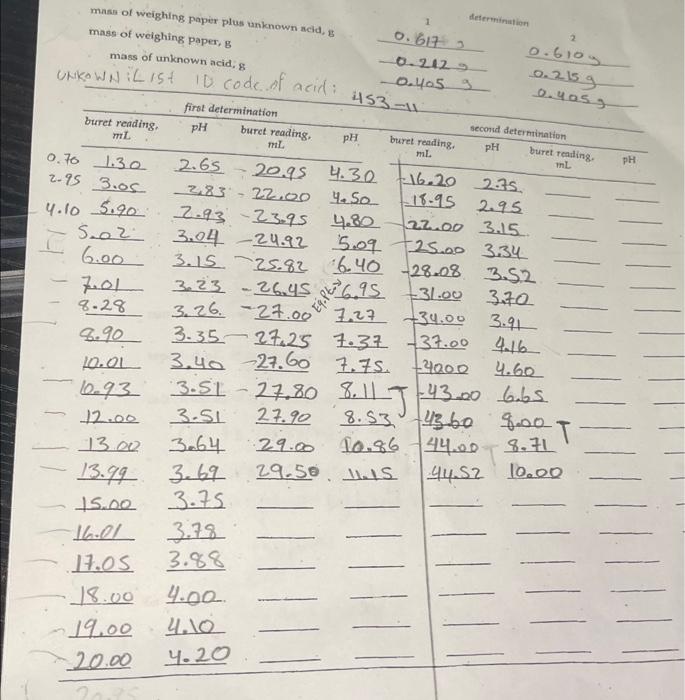 determination
mass of weighing paper plus unknown acid, g 1 2
mass of weighing paper, g 0.617 g 0.610 g
mass of unknown acid, g 0.212 g 0.215 g
0.405 g 0.405 g
UNKOWN: List ID code of acid: 453-11
first determination second determination
buret reading, mL pH buret reading, mL pH buret reading, mL pH buret reading, mL pH
0.70 1.30 2.65 - 20.95 4.30 16.20 2.75
2.95 3.05 2.83 - 22.00 4.50 18.95 2.95
4.10 5.90 2.93 - 23.95 4.80 22.00 3.15
5.02 3.04 - 24.92 5.09 25.00 3.34
6.00 3.15 - 25.82 6.40 28.08 3.52
7.01 3.23 - 26.45 6.95 31.00 3.70
8.28 3.26 - 27.00 7.27 34.00 3.91
8.90 3.35 - 27.25 7.37 37.00 4.16
10.01 3.40 - 27.60 7.75 4000 4.60
10.93 3.51 - 27.80 8.11 43.00 6.65
12.00 3.51 27.90 8.53 43.60 8.00
13.00 3.64 29.00 10.86 44.00 8.71
13.99 3.69 29.50 11.15 44.52 10.00
15.00 3.75
16.01 3.78
17.05 3.88
18.00 4.00
19.00 4.10
20.00 4.20